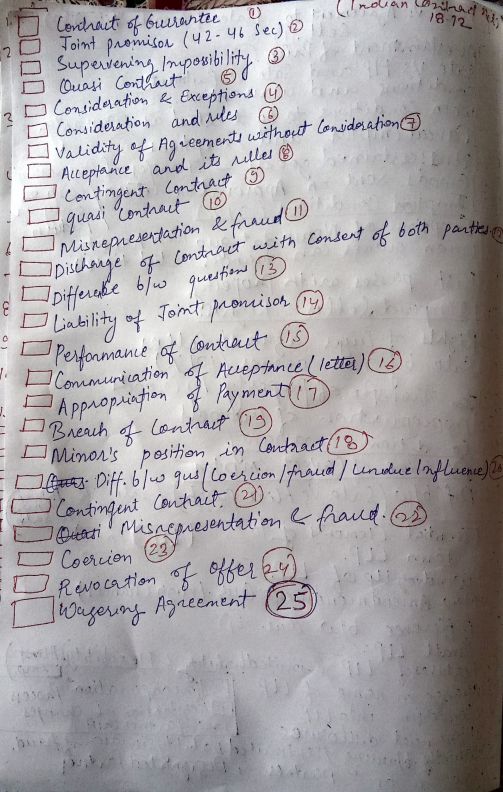 (Indian Contract Act,
1872
Contract of Guarantee ①
Joint promisor (42-46 Sec) ②
Supervening Impossibility ③
Quasi Contract ⑤
Consideration & Exceptions ④
Consideration and rules ⑥
Validity of Agreements without Consideration ⑦
Acceptance and its rules ⑧
Contingent Contract ⑨
quasi Contract ⑩
Misrepresentation & fraud ⑪
Discharge of Contract with Consent of both parties
Difference b/w question ⑬
Liability of Joint promisor ⑭
Performance of Contract ⑮
Communication of Acceptance (letter) ⑯
Appropriation of Payment ⑰
Breach of Contract ⑲
Minor's position in Contract ⑱
Quas Diff. b/w qus (Coercion / fraud / undue Influence)
Contingent Contract. ㉑
Quasi Misrepresentation & fraud. ㉒
Coercion ㉓
Revocation of offer ㉔
Wagering Agreement ㉕